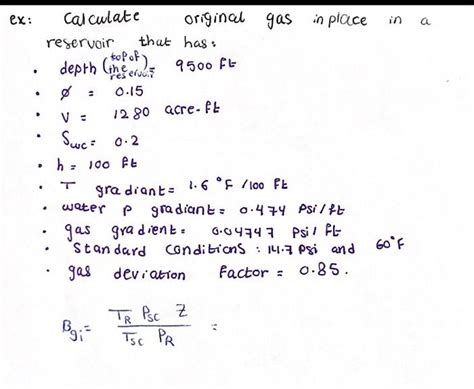 ex: Calculate original gas in place in a
reservoir that has:
• depth (top of the reservoir) = 9500 ft
• ø = 0.15
• V = 1280 acre-ft
• Swc = 0.2
• h = 100 ft
• T gradiant = 1.6 °F /100 ft
• water p gradiant = 0.474 psi/ft
• gas gradient = 0.04747 psi/ft
• standard conditions : 14.7 psi and 60°F
• gas deviation factor = 0.85.
Bgi = TR PSC Z / TSC PR =